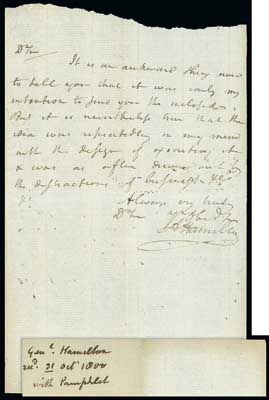 Dr Sir
It is an awkward thing now
to tell you that it was early my
intention to send you the inclosed.
But it is nevertheless true that the
idea was repeatedly in my mind
with the design of executing it
& was as often driven out by
the distractions of business &c.
Always very truly
Dr Sir
A Hamilton
Genl. Hamilton
recd. 31 Octr 1800
with Pamphlet